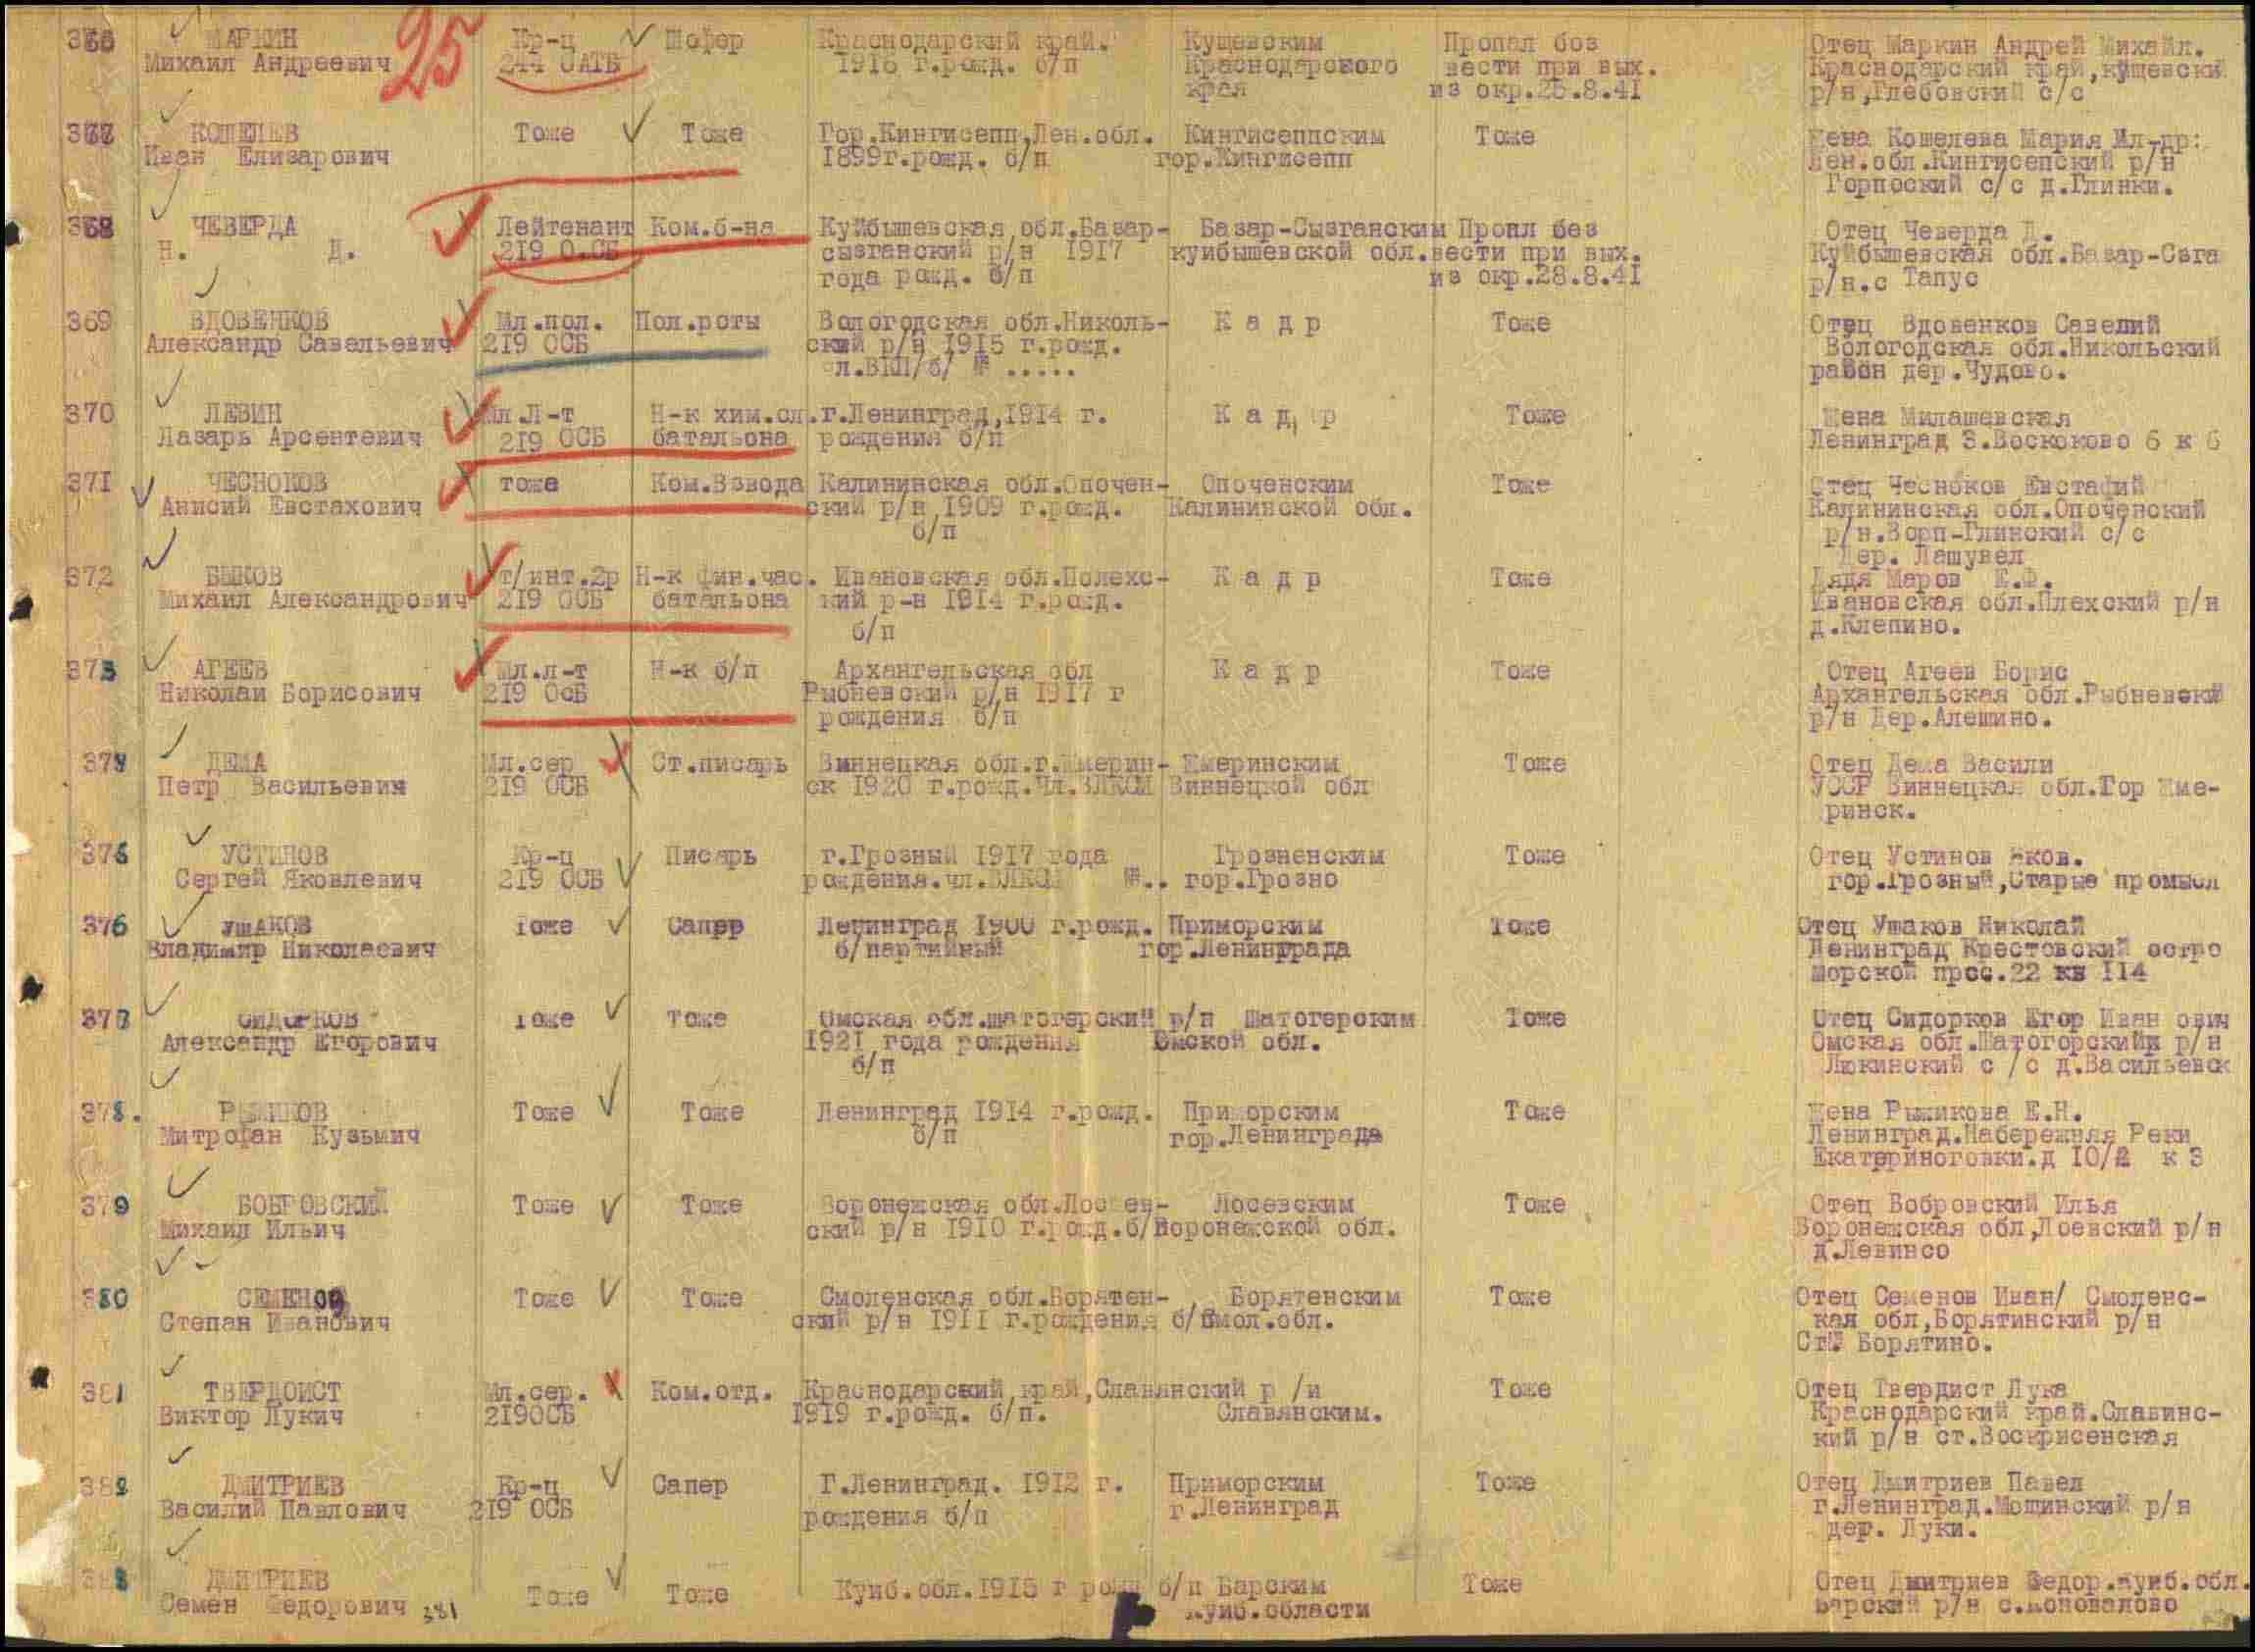 366 МАРКИН Кр-ц Шофер Краснодарский край. Кущевским Пропал без Отец Маркин Андрей Михайл.
Михаил Андреевич 25 244 ОАТБ 1916 г.рожд. б/п Краснодарского вести при вых. Краснодарский край,кущевский
края из окр.25.8.41 р/н,Глебовский с/с
367 КОШЕЛЕВ Тоже Тоже Гор.Кингисепп,Лен.обл. Кингисеппским Тоже Жена Кошелева Мария Ил-др:
Иван Елизарович 1899г.рожд. б/п гор.Кингисепп Лен.обл.Кингисепский р/н
Горпоский с/с д.Глинки.
368 ЧЕВЕРДА Лейтенант Ком.б-на Куйбышевская обл.Базар- Базар-Сызганским Пропл без Отец Чеверда Д.
Н. Д. 219 О.СБ сызганский р/н 1917 куйбышевской обл. вести при вых. Куйбышевская обл.Базар-Сзга
года рожд. б/п из окр.28.8.41 р/н.с Тапус
369 ВДОВЕНКОВ Мл.пол. Пол.роты Вологодская обл.Николь- К а д р Тоже Отец Вдовенков Савелий
Александр Савельевич 219 ОСБ ский р/н 1915 г.рожд. Вологодская обл.Никольский
чл.ВКП/б/ № ..... район дер.Чудово.
370 ЛЕВИН Мл.Л-т Н-к хим.сл. г.Ленинград,1914 г. К а д р Тоже Жена Милашевская
Лазарь Арсентевич 219 ОСБ батальона рождения б/п Ленинград З.Воскоково 6 к 6
371 ЧЕСНОКОВ тоже Ком.Взвода Калининская обл.Опочен- Опоченским Тоже Отец Чесноков Евстафий
Анисий Евстахович ский р/н 1909 г.рожд. Калининской обл. Калининская обл.Опоченский
б/п р/н.Ворп-Глинский с/с
Дер. Лашувел
372 БЫКОВ т/инт.2р Н-к фин.час. Ивановская обл.Полехс- К а д р Тоже Дядя Маров Е.Ф.
Михаил Александрович 219 ОСБ батальона кий р-н 1914 г.рожд. Ивановская обл.Плехский р/н
б/п д.Клепино.
373 АГЕЕВ Мл.л-т Н-к б/п Архангельская обл К а д р Тоже Отец Агеев Борис
Николаи Борисович 219 ОсБ Рыбневский р/н 1917 г Архангельская обл.Рыбневский
рождения б/п р/н Дер.Алешино.
374 ДЕМА Мл.сер Ст.писарь Виннецкая обл.г.Жмерин- Жмеринским Тоже Отец Дема Васили
Петр Васильевич 219 ОСБ ск 1920 г.рожд.Чл.ВЛКСМ Виннецкой обл УССР Виннецкая обл.Гор Жме-
ринск.
375 УСТИНОВ Кр-ц Писарь г.Грозный 1917 года Грозненским Тоже Отец Устинов Яков.
Сергей Яковлевич 219 ОСБ рождения.чл.ВЛКСМ №.. гор.Грозно гор.Грозный,Старые промысл
376 УШАКОВ Тоже Сапер Ленинград 1900 г.рожд. Приморским Тоже Отец Ушаков Николай
Владимир Николаевич б/партийный гор.Ленинграда Ленинград Крестовский остро
Морской прос.22 кв 114
377 СИДОРКОВ Тоже Тоже Омская обл.шатогерский р/н Шатогерским Тоже Отец Сидорков Егор Иван ович
Александр Егорович 1921 года рождения Омской обл. Омская обл.Шатогорский р/н
б/п Люкинский с /с д.Васильевск
378. РЫЖИКОВ Тоже Тоже Ленинград 1914 г.рожд. Приморским Тоже Жена Рыжикова Е.Н.
Митрофан Кузьмич б/п гор.Ленинграда Ленинград.Набережняя Реки
Екатериноговки.д 10/2 к 3
379 БОБРОВСКИЙ Тоже Тоже Воронежская обл.Лосев- Лосевским Тоже Отец Бобровский Илья
Михаил Ильич ский р/н 1910 г.рожд.б/п Воронежской обл. Воронежская обл,Лоевский р/н
д.Левинсо
380 СЕМЕНОВ Тоже Тоже Смоленская обл.Борятен- Борятенским Тоже Отец Семенов Иван/ Смоленс-
Степан Иванович ский р/н 1911 г.рождения б/п Смол.обл. кая обл,Борятинский р/н
Ст. Борятино.
381 ТВЕРДОИСТ Мл.сер. Ком.отд. Краснодарский край,Славянский р /н Тоже Отец Твердист Лука
Виктор Лукич 219ОСБ 1919 г.рожд. б/п. Славянским. Краснодарский край.Славинс-
кий р/н ст.Воскрисенская
382 ДМИТРИЕВ Кр-ц Сапер Г.Ленинград. 1912 г. Приморским Тоже Отец Дмитриев Павел
Василий Павлович 219 ОСБ рождения б/п г.Ленинград г.Ленинград.Мошинский р/н
дер. Луки.
383 ДМИТРИЕВ Тоже Тоже Куйб.обл.1915 г рожд б/п Барским Тоже Отец Дмитриев Федор.куйб.обл.
Семен Федорович 381 Куйб.области Барский р/н с.Коновалово